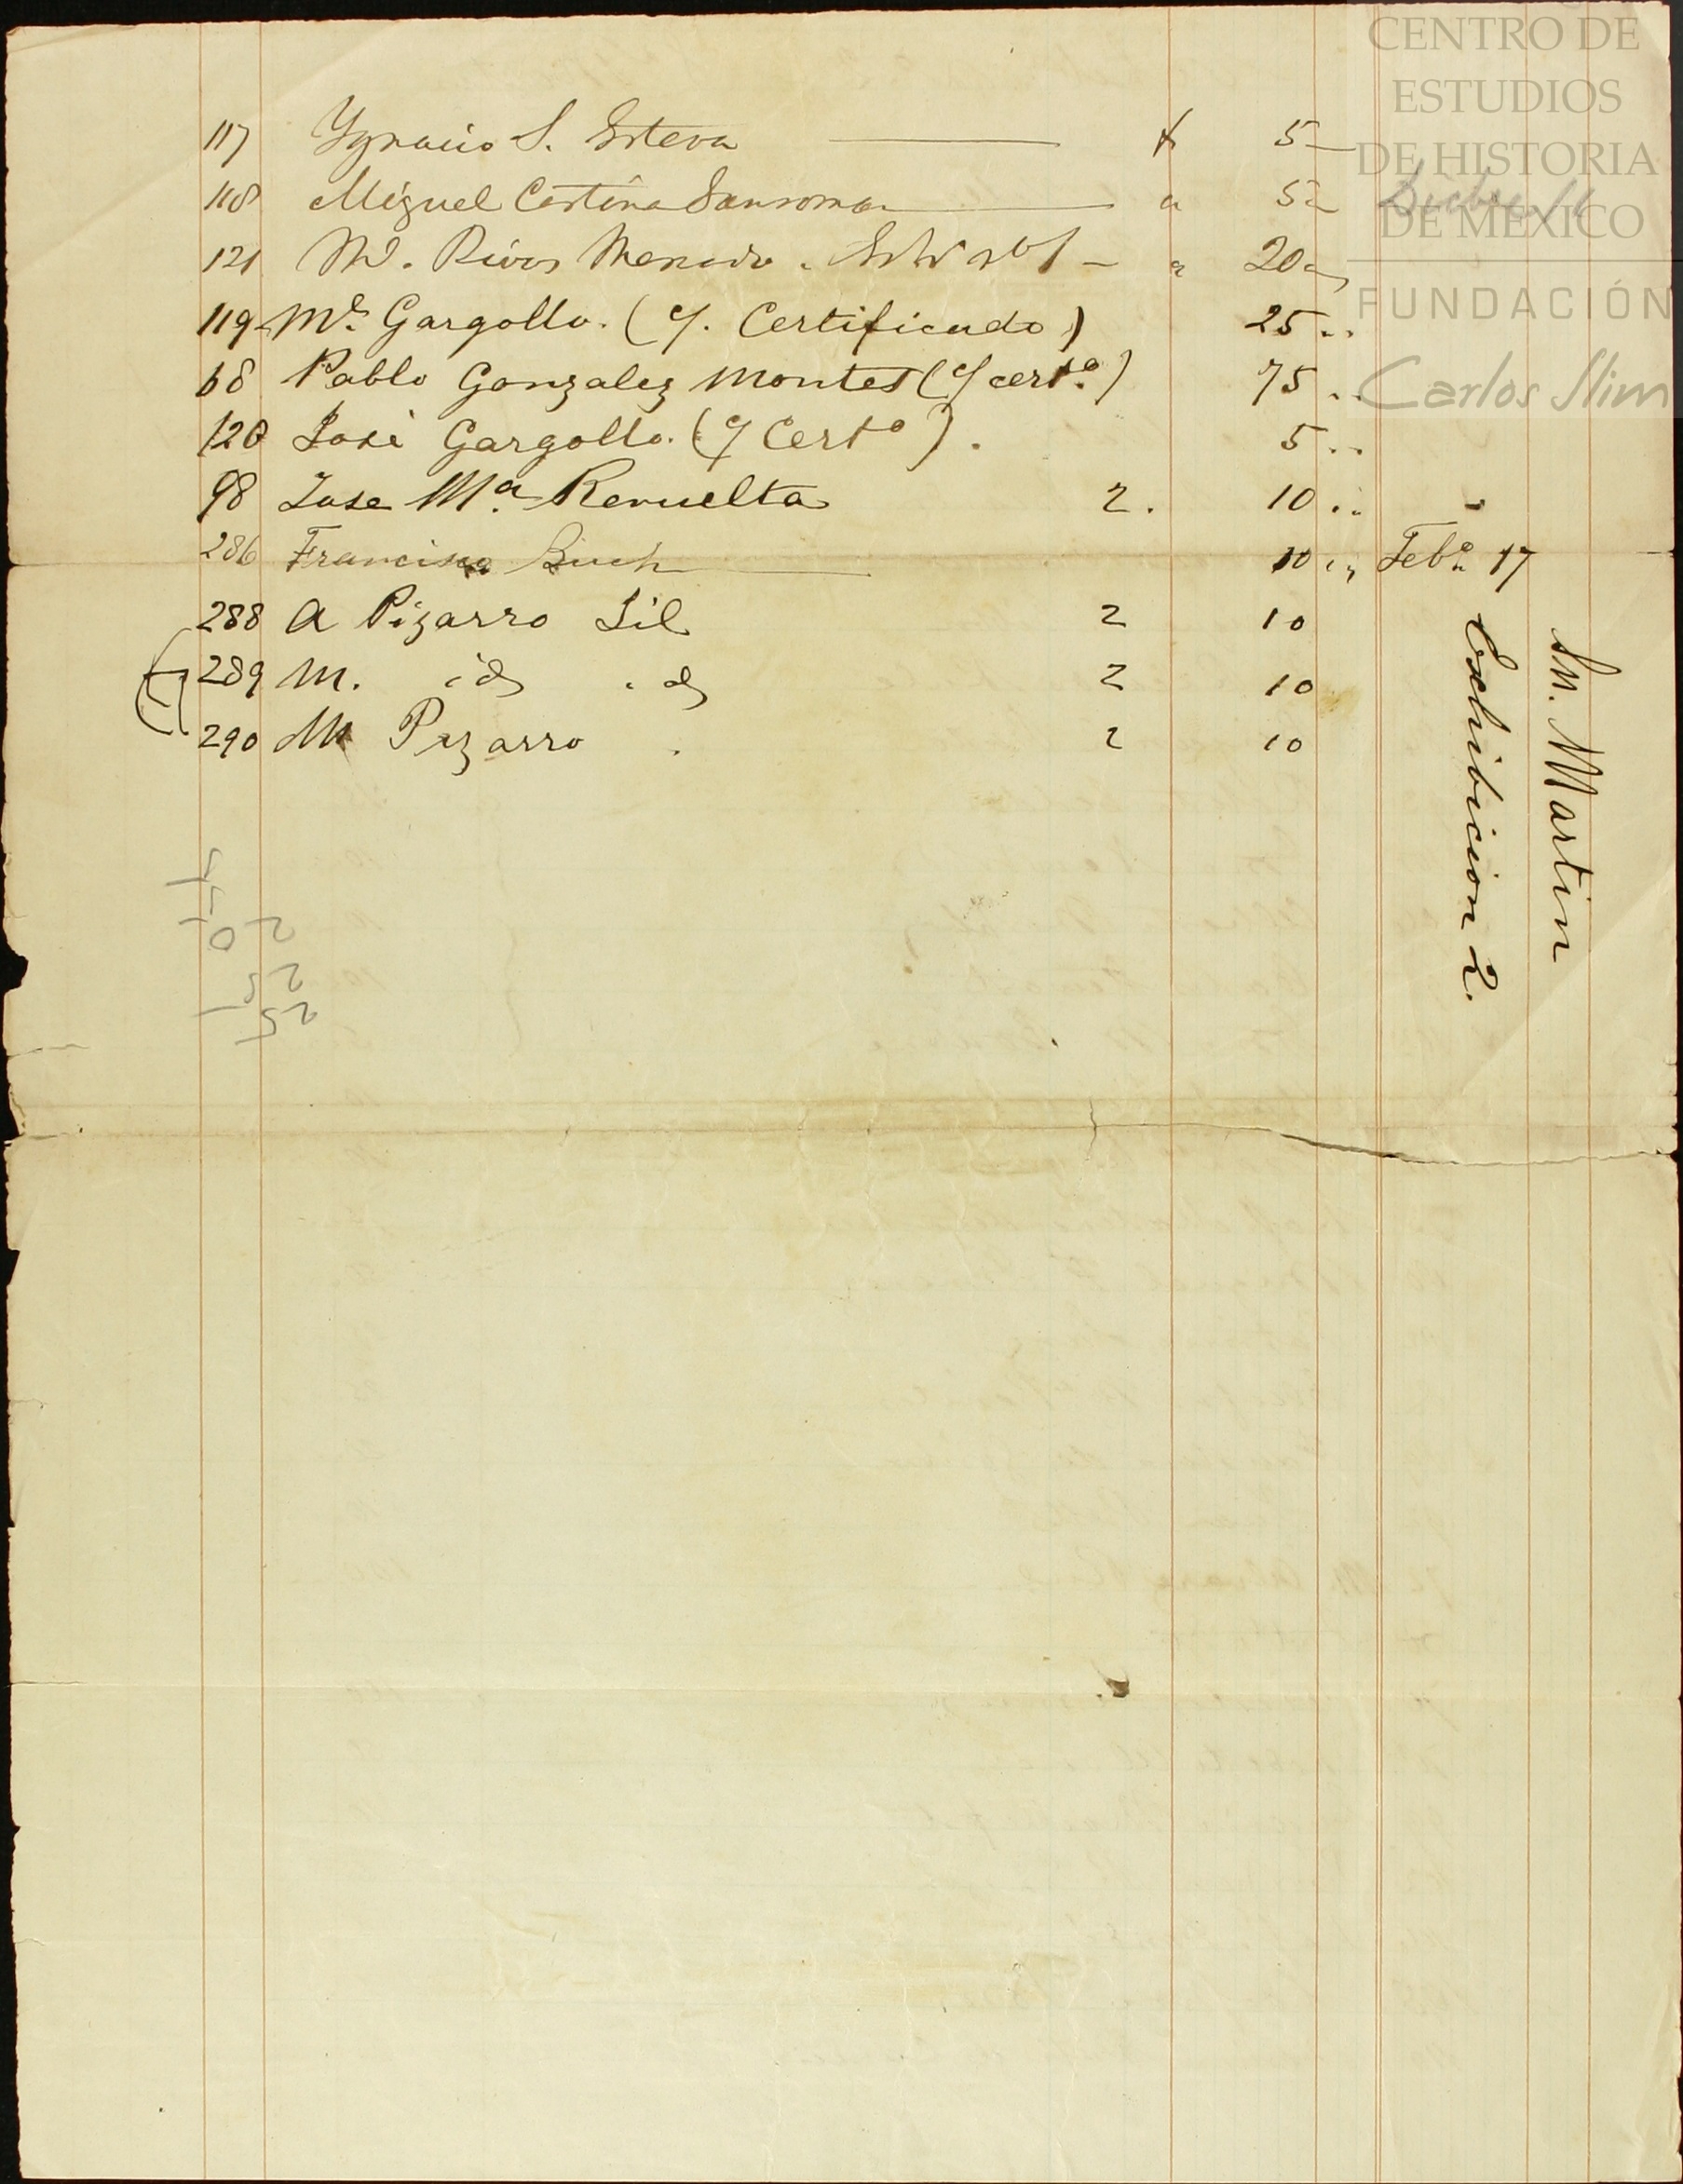 CENTRO DE
ESTUDIOS
DE HISTORIA
DE MÉXICO
FUNDACIÓN
Carlos Slim
117 Ygnacio S. Esteva 5
118 Miguel Cortina 5
121 M. Rivas 20
119 M.l Gargollo. (c/. Certificado) 25..
68 Pablo Gonzalez Montes (c/ cert.o) 75..
120 José Gargollo. (c/ Certo). 5..
98 Jose M.a Revuelta 2. 10..
286 Francisco Buch 10.. Feb.o 17
288 A Pizarro Sil 2 10
289 M. id . id 2 10
290 M Pizarro . 2 10
Sn. Martin
Exchibicion 2.